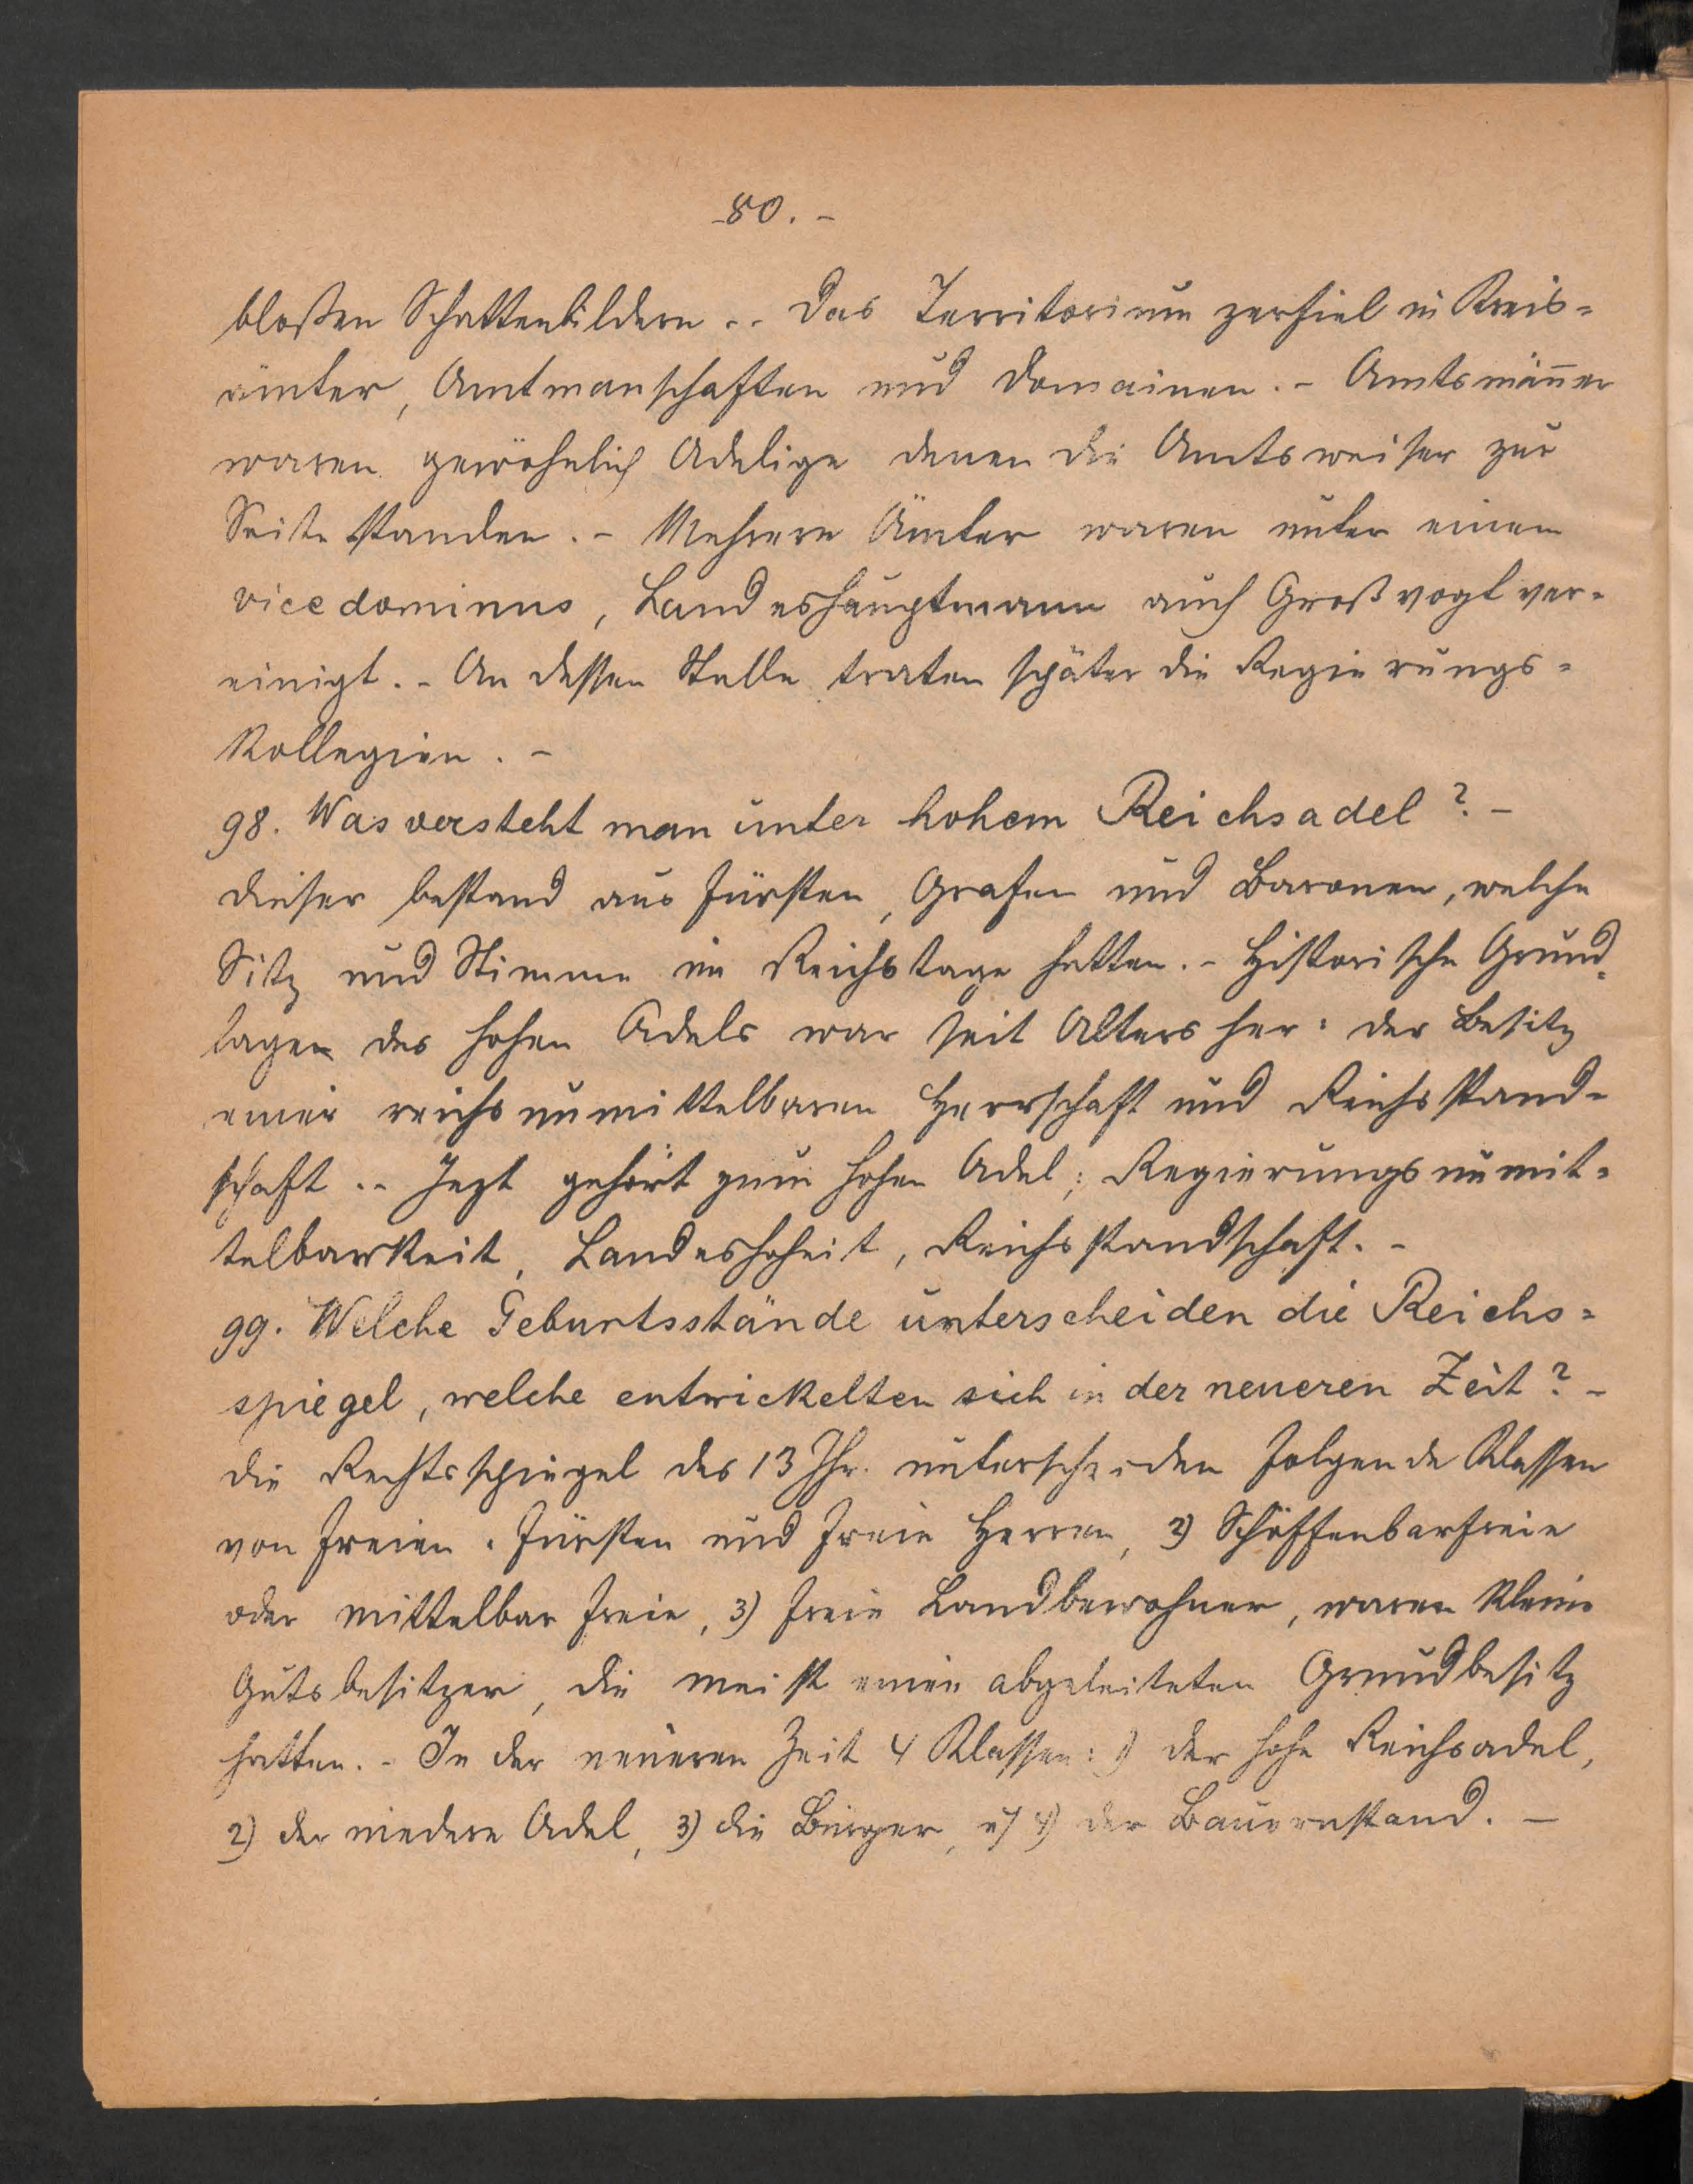 -80.-
bloßen Schattenbildern.- Das Territorium zerfiel in Kreis=
ämter, Amtmanschaften und Domainen.- Amtsmänner
waren gewöhnlich Adelige denen die Amtsweiser zur
Seite standen.- Mehrere Ämter waren unter einem
vicedominus, Landeshauptmann auch Großvogt ver=
einigt.- An dessen Stelle traten später die Regierungs=
Kollegien.-
98. Was versteht man unter hohem Reichsadel?-
Dieser bestand aus Fürsten, Grafen und Baronen, welche
Sitz und Stimme im Reichstage hatten.- Historische Grund=
lagen des hohen Adels war seit Alters her: der Besitz
einer reichsunmittelbaren Herrschaft und Reichsstand=
schaft.- Jezt gehört zum hohen Adel; Regierungsunmit=
telbarkeit, Landeshoheit, Reichsstandschaft.-
99. Welche Geburtsstände unterscheiden die Reichs=
spiegel, welche entwickelten sich in der neueren Zeit?-
Die Rechtsspiegel des 13 Jhr. unterscheiden folgende Klassen
von Freien. Fürsten und freie Herren, 2) Schöffenbarfreie
oder mittelbar freie, 3) freie Landbewohner, waren kleine
Gutsbesitzer, die meist einen abgeleiteten Grundbesitz
hatten.- In der neueren Zeit 4 Klassen: 1) der hohe Reichsadel,
2) der niedere Adel, 3) die Bürger, u 4) der Bauernstand.-